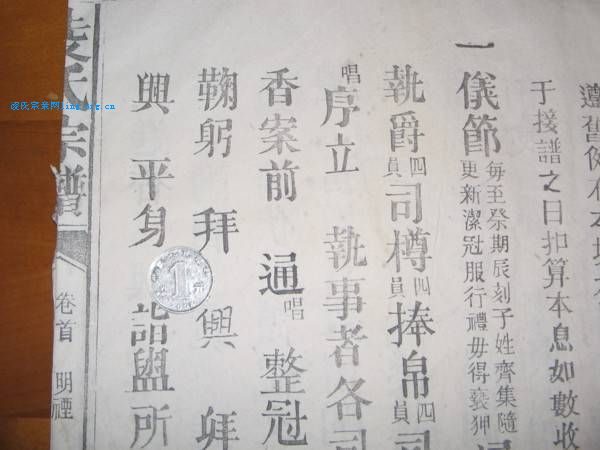 遵舊
于接譜之日扣算本息如數收
一儀節
每至祭期辰刻子姓齊集隨
更新潔冠服行禮毋得褻狎
執爵四員司樽四員捧帛四員司
唱序立 執事者各司
香案前 通唱 整冠
鞠躬 拜 興 拜
興 平身 詣盥所
氏宗譜 卷首 明禋
凌氏宗亲网ling.org.cn
1